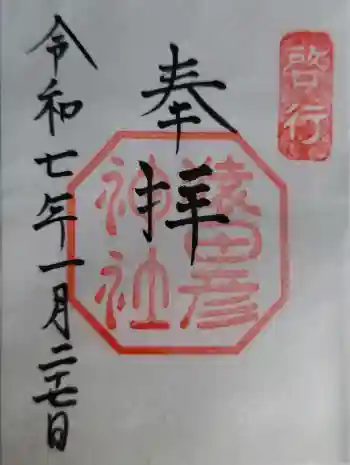 啓行
奉拝
猿田彦
神社
令和七年一月二十七日